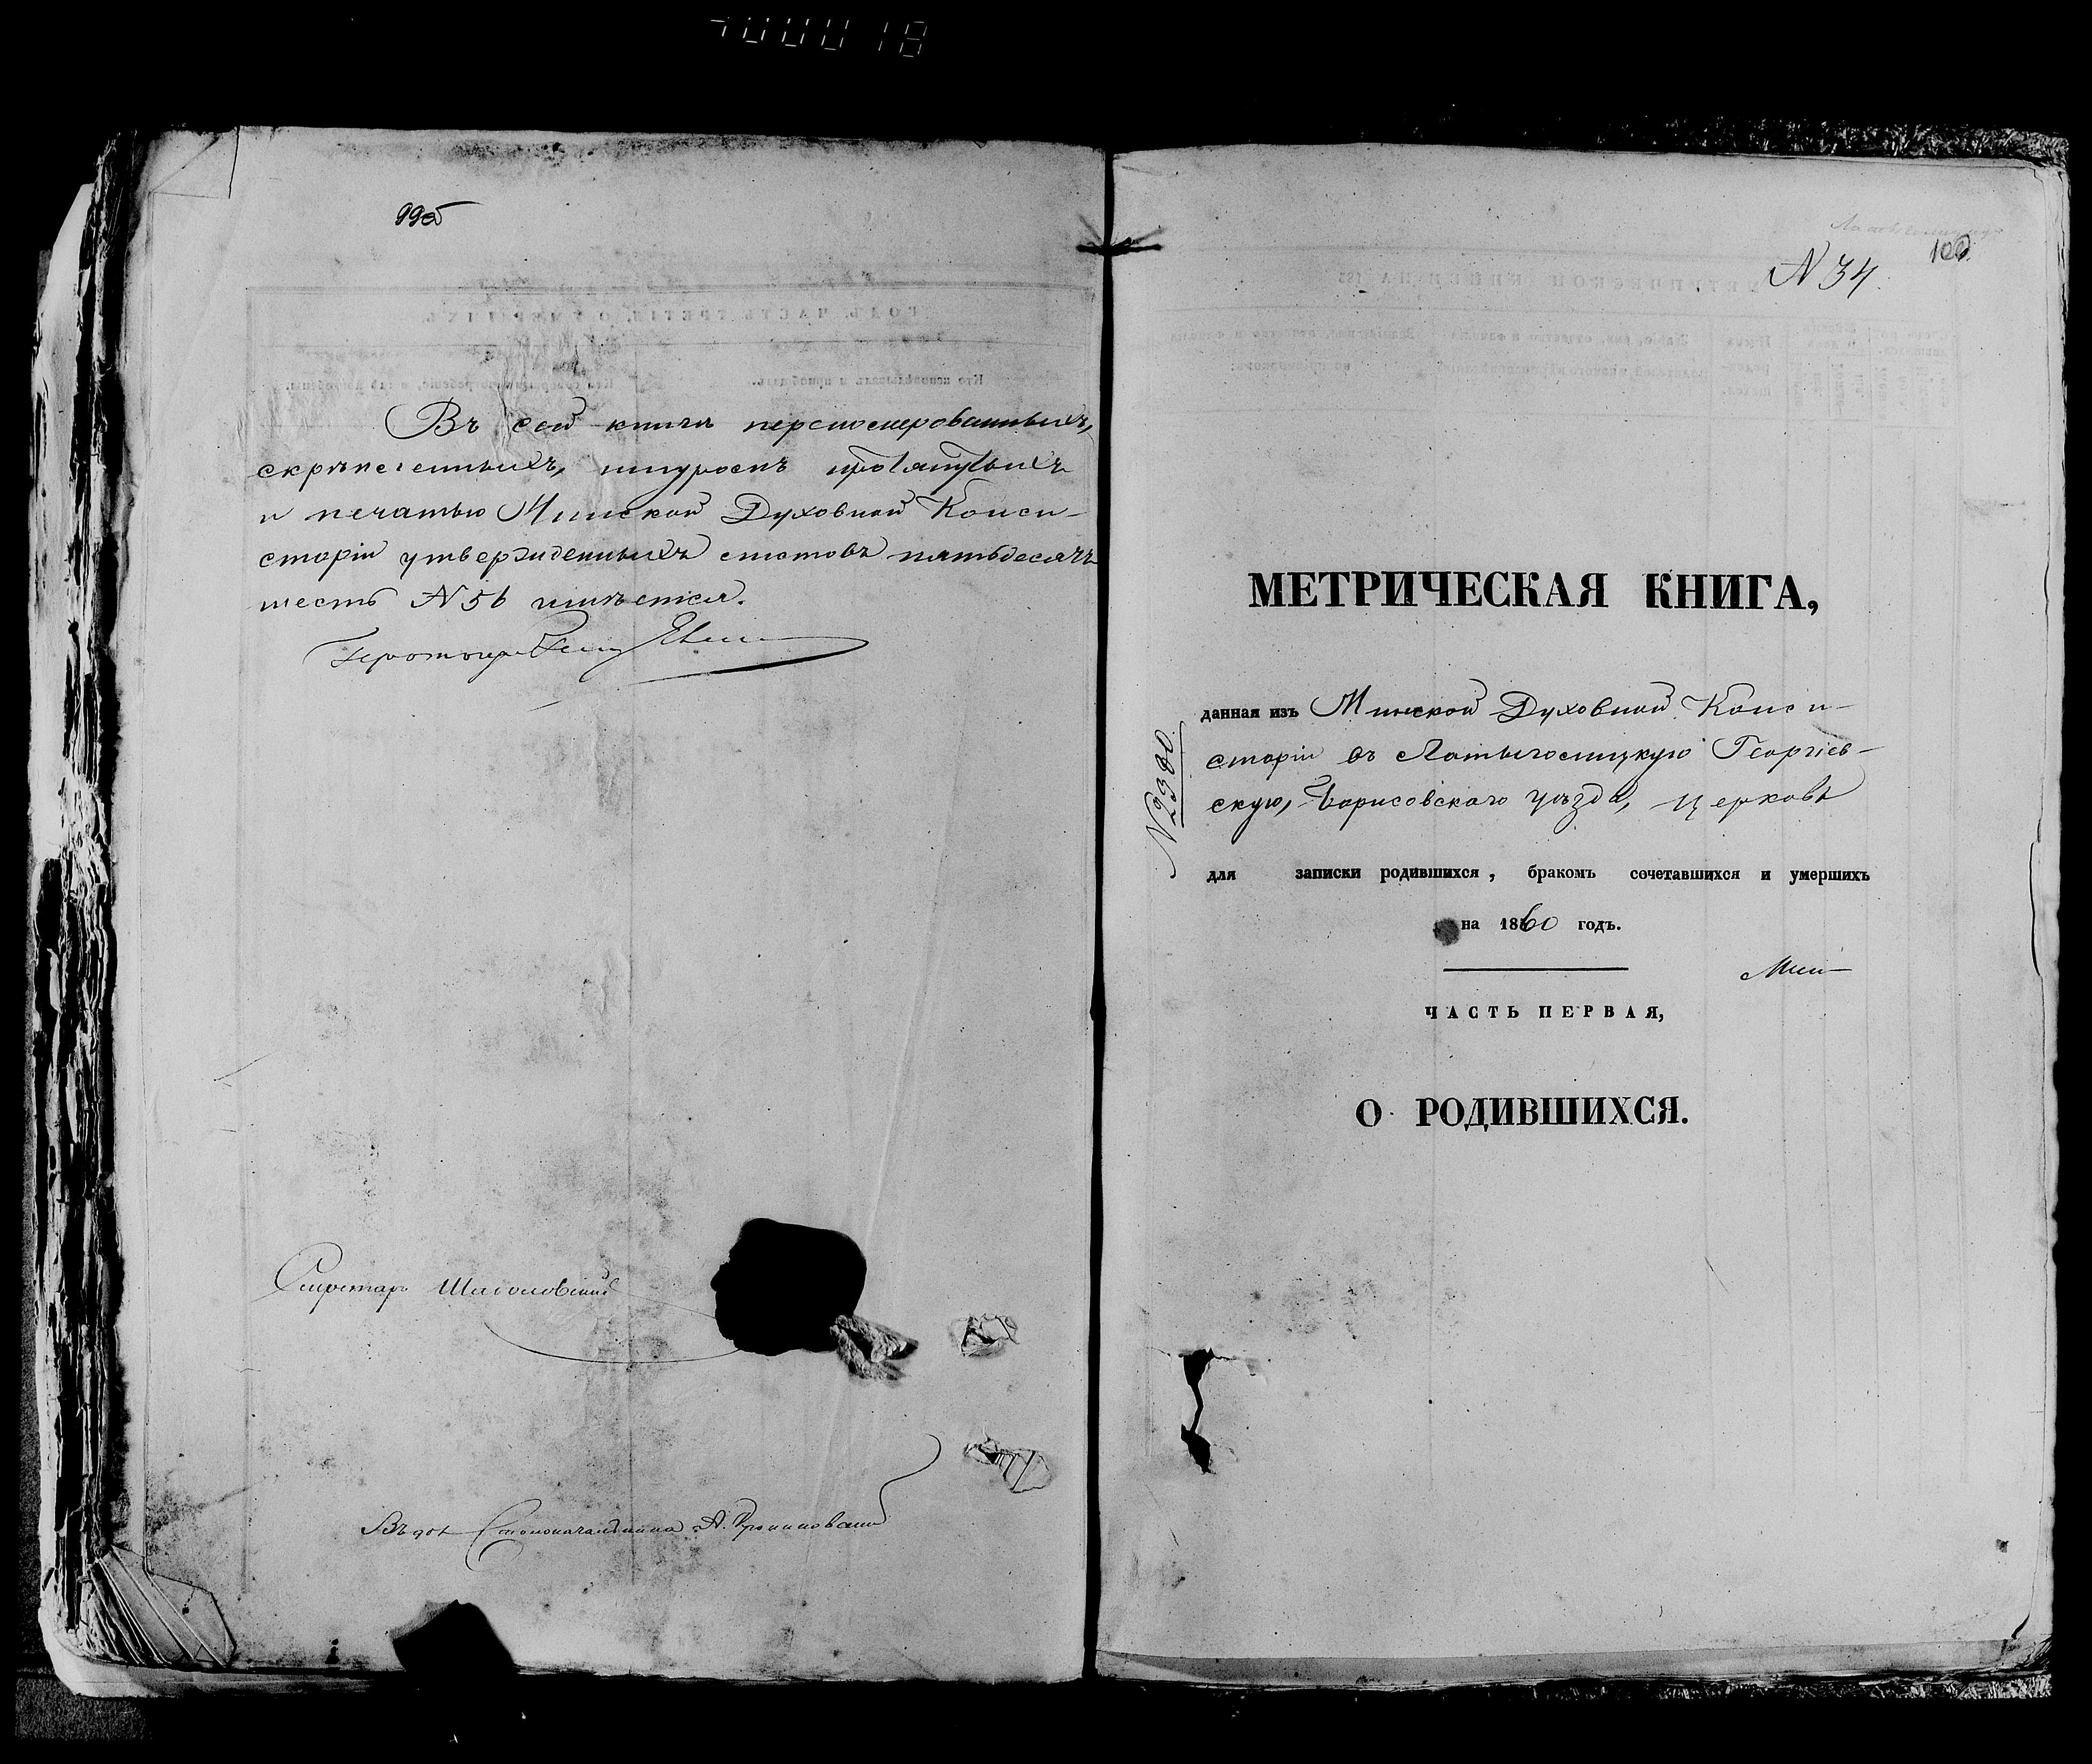 99об
Въ сей книгѣ перенумерованныхъ,
скрѣпленныхъ, шнуромъ протянутыхъ
и печатью Минской Духовной Конси-
сторіи утвержденныхъ листовъ пятьдесятъ
шесть N 56 имѣется.
Секретарь
Въ дол. Столоначальника А.
100
N 34.
МЕТРИЧЕСКАЯ КНИГА,
данная изъ Минской Духовной Конси-
сторіи въ Латыголицкую Георгіев-
скую, Борисовскаго уѣзда, церковь
для записки родившихся, бракомъ сочетавшихся и умершихъ
на 1860 годъ.
ЧАСТЬ ПЕРВАЯ,
О РОДИВШИХСЯ.